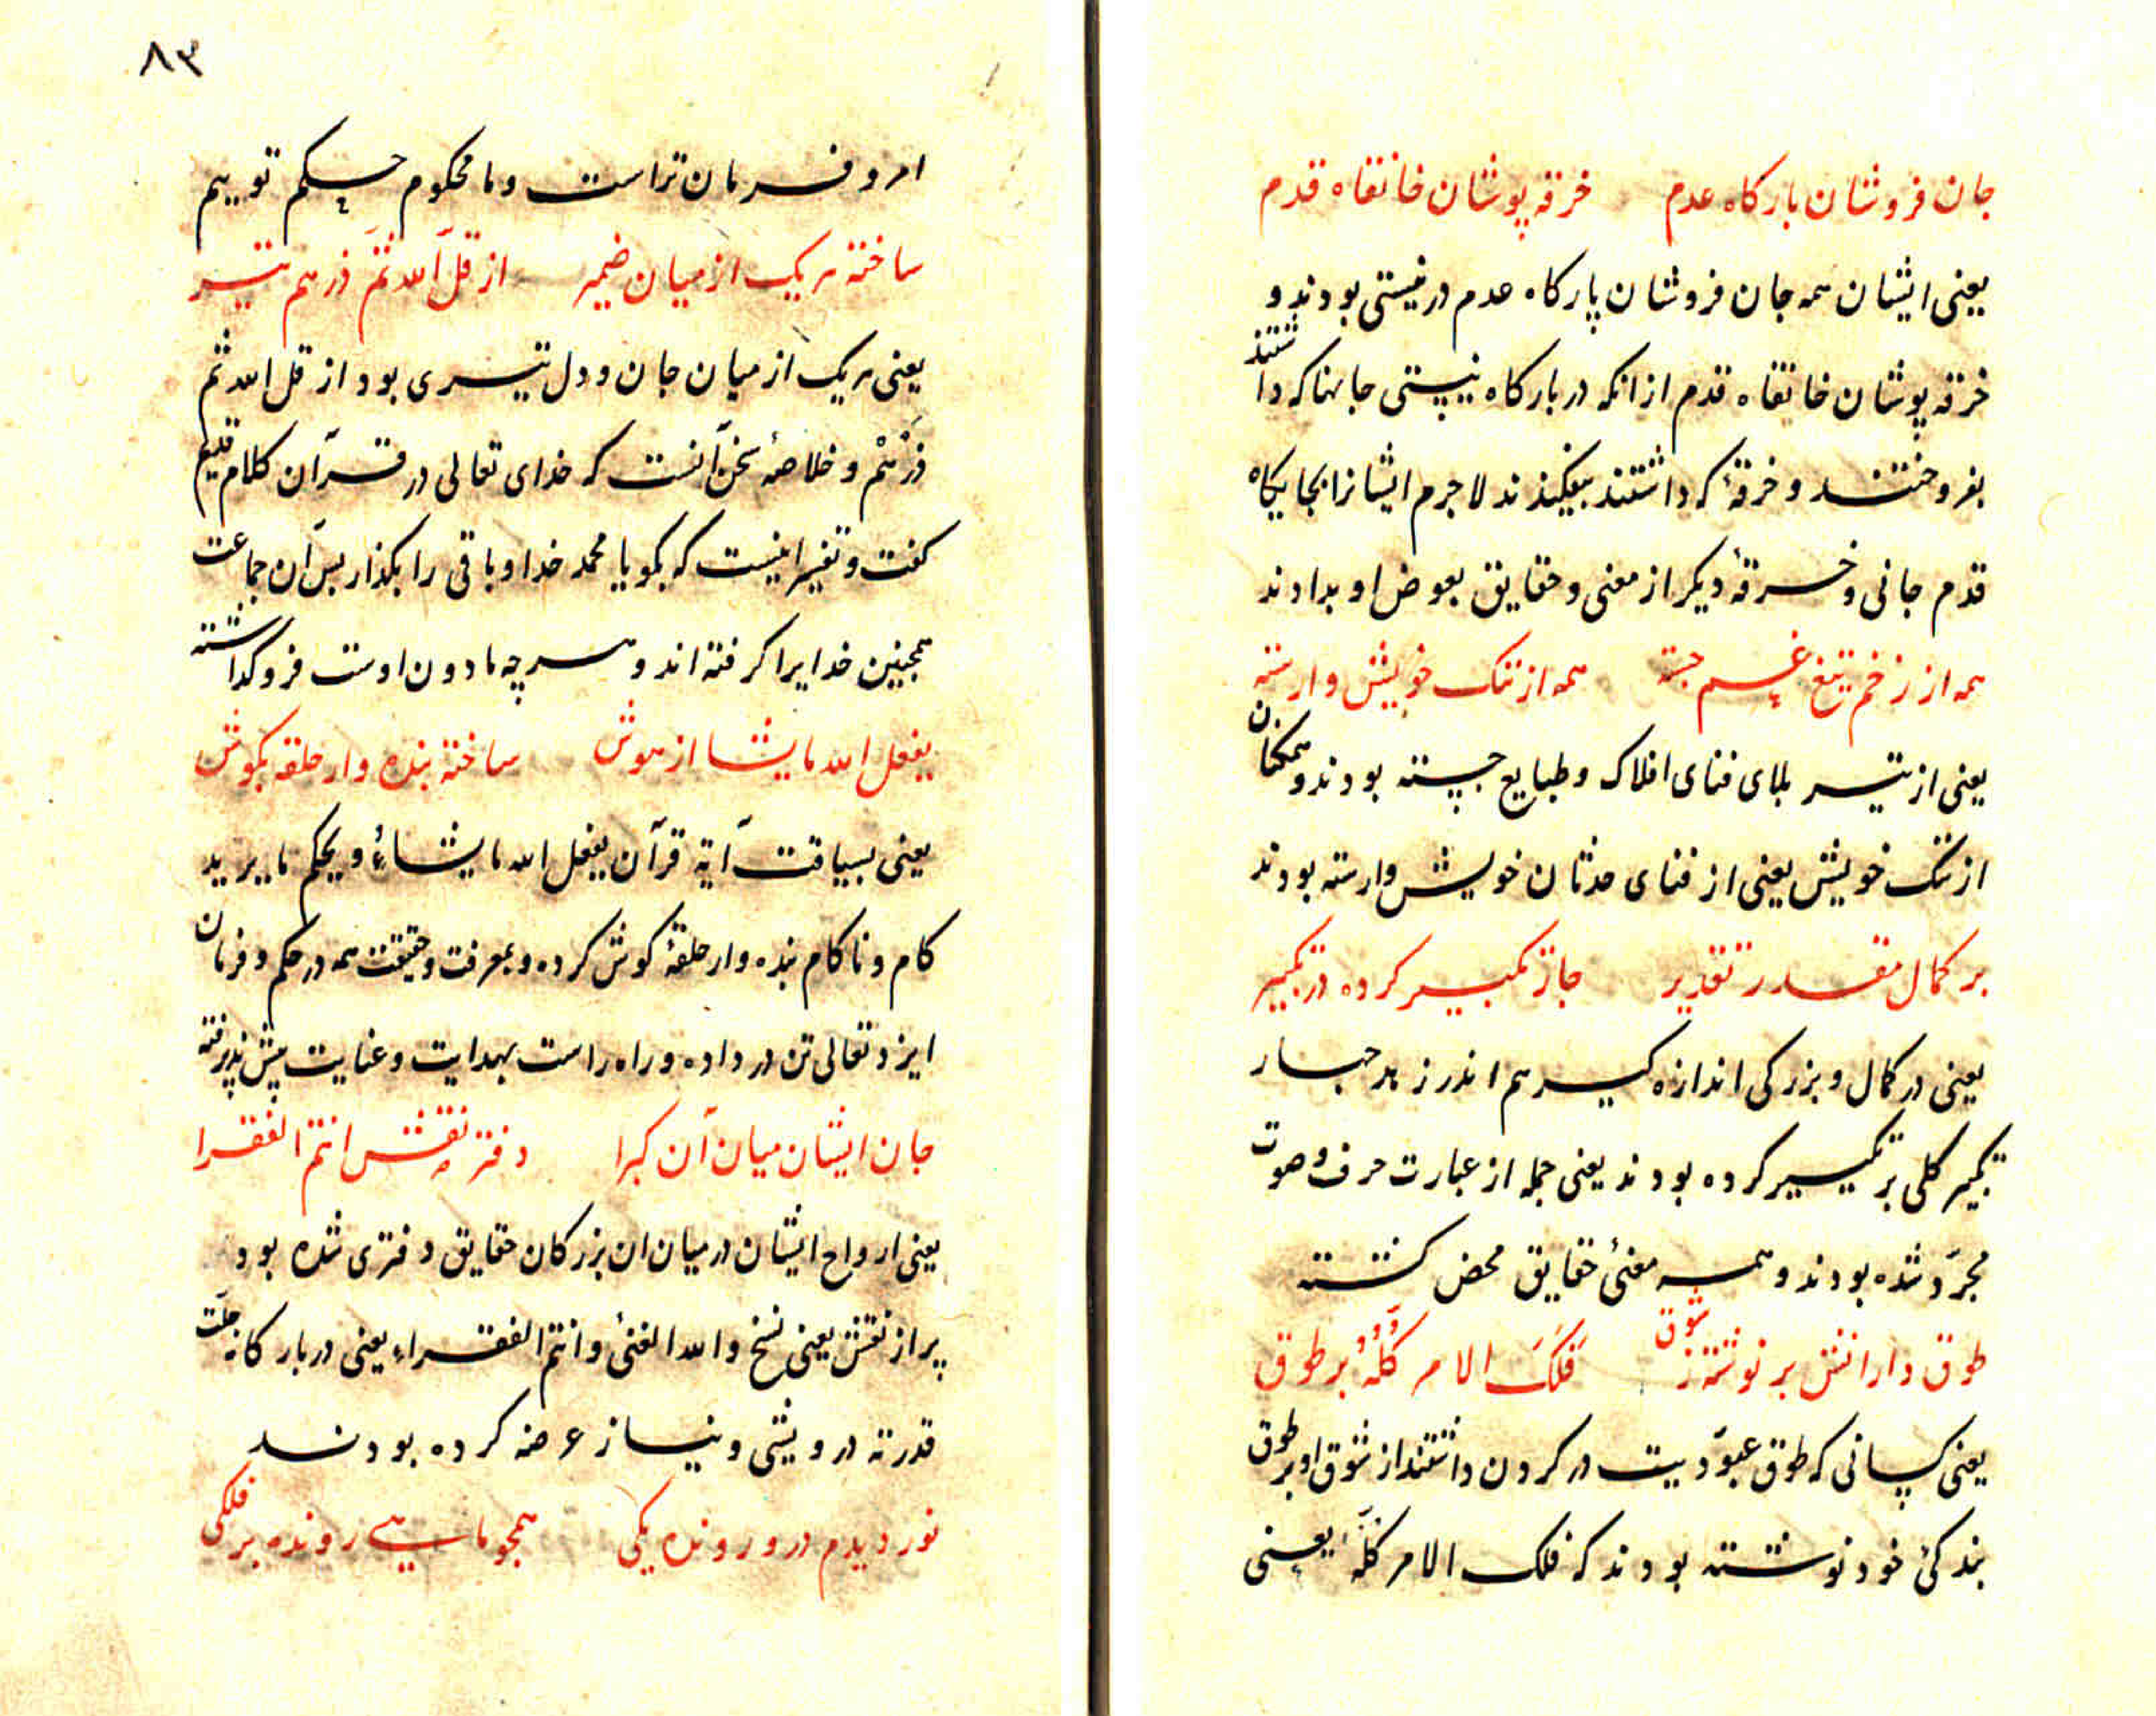 جان فروشان بارکاه عدم خرقه پوشان خانقاه قدم
یعنی ایشان همه جان فروشان بارکاه عدم در نیستی بودند و
خرقه پوشان خانقاه قدم از انکه در بارکاه نیستی جانها که داشتند
بفروختند و خرقهٔ که داشتند بیفکندند لاجرم ایشانرا بجایکاه
قدم جانی و خرقهٔ دیکر از معنی و حقایق بعوض او بدادند
همه از زخم تیغ غم جسته همه از ننک خویش وارسته
یعنی از تیر بلای فنای افلاک و طبایع جسته بودند و همکنان
از ننک خویش یعنی از فنای حدثان خویش وارسته بودند
بر کمال مقدر تقدیر جان تکبیر کرده در تکبیر
یعنی در کمال و بزرکی اندازه کیر هم اندر ز هر جبار
تکبیر کلی بر تکبیر کرده بودند یعنی جمله از عبارت حرف و صوت
مجرّد شده بودند و همه معنئ حقایق محض کشته
طوق دارانش بر نوشته ز شوق فَلَکَ الامر کُلُّهُ بر طوق
یعنی کسانی که طوق عبوّدیت در کردن داشتند از شوق او بر طوق
بندکئ خود نوشته بودند که فلک الامر کلّهُ یعنی
۸۳
امر و فرمان تراست و ما محکوم حکم توییم
ساخته هر یک از میان ضمیر از قل الله ثمّ ذرهم تیر
یعنی هر یک از میان جان و دل تیری بود از قل الله ثم
ذَرْهُم و خلاصهٔ سخن آنست که خدای تعالی در قرآن کلام قدیم
کفت و تفسیر اینست که بکو یا محمد خدا و باقی را بکذار پس آن جماعت
همچنین خدایرا کرفته اند و هر چه مادون اوست فرو کداشته
یفعل الله ما یشا از هوش ساخته بنده وار حلقه بکوش
یعنی بسیاقت آیة قرآن یفعل الله ما یشاءُ و یحکم ما یرید
کام و ناکام بنده وار حلقهٔ کوش کرده و بمعرفت و حقیقت همه در حکم و فرمان
ایزد تعالی تن در داده و راه راست بهدایت و عنایت پیش پذیرفته
جان ایشان میان آن کبرا دفتر نقش انتم الفقرا
یعنی ارواح ایشان در میان ان بزرکان حقایق دفتری شده بود
پر از نقش یعنی نسخ والله الغنئ و انتم الفقراء یعنی در بارکاه جلّت
قدرته درویشی و نیاز عرضه کرده بودند
نور دیدم درو رونده یکی همجو ماهی رونده بر فلکی